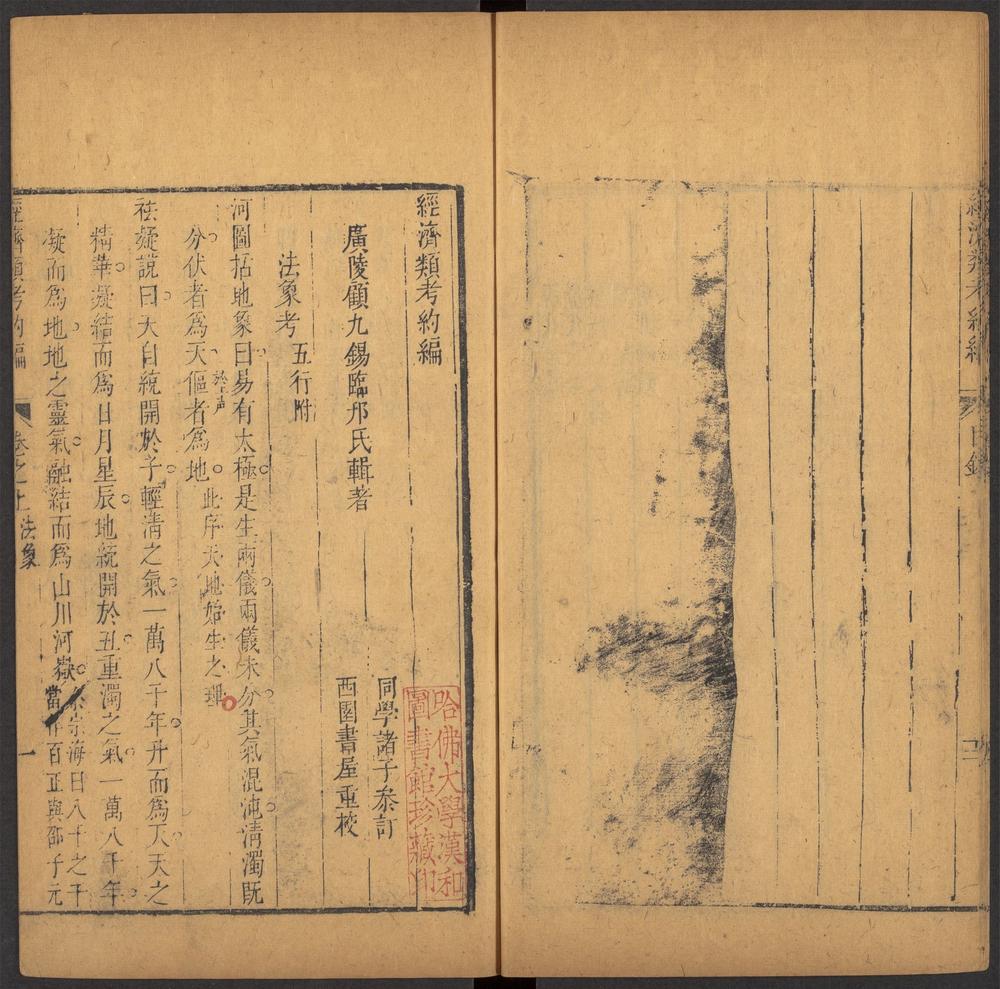 目錄
經濟類考約編
哈佛大學漢和
圖書館珍藏印
同學諸子叅訂
廣陵顧九錫臨邘氏輯著
西園書屋重校
法象考 五行附
河圖括地象曰易有太極是生兩儀兩儀未分其氣混沌清濁既
分伏者為天 於上声 傴者為地 此序天地始生之理
祛疑說曰天自統開於子輕清之氣一萬八千年升而為天天之
精華凝結而為日月星辰地統開於丑重濁之氣一萬八千年
凝而為地地之靈氣融結而為山川河嶽 宗海曰八千之千
當作百正與邵子元
經濟類考約編 卷之上 法象 一